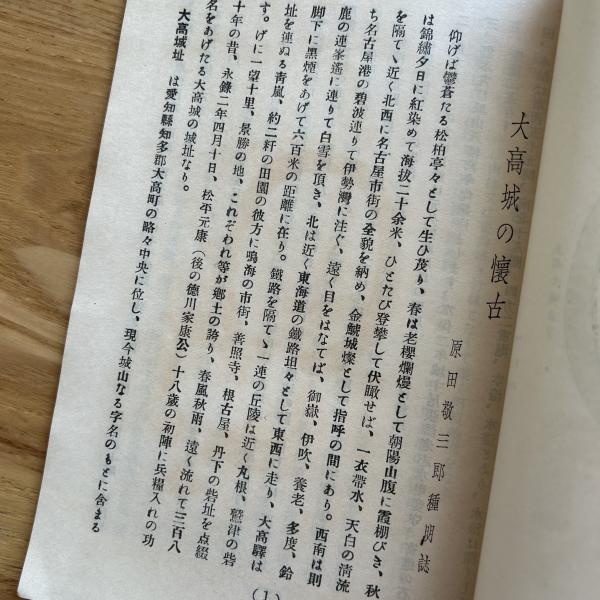 大高城の懐古
原田敬三郎種朋誌
仰げば鬱蒼たる松柏亭々として生ひ茂り、春は老櫻爛熳として朝陽山腹に霞棚びき、秋
は錦繡夕日に紅染めて海抜二十余米、ひとたび登攀して伏瞰せば、一衣帶水、天白の清流
を隔てゝ近く北西に名古屋市街の全貌を納め、金鯱城燦として指呼の間にあり。西南は則
ち名古屋港の碧波連りて伊勢灣に注ぐ、遠く目をはなてば、御嶽、伊吹、養老、多度、鈴
鹿の連峯遙に連りて白雪を頂き、北は近く東海道の鐵路坦々として東西に走り、大高驛は
脚下に黒煙をあげて六百米の距離に在り。鐵路を隔てゝ一連の丘陵は近く丸根、鷲津の砦
址を連ぬる靑嵐、約二粁の田園の彼方に鳴海の市街、善照寺、根古屋、丹下の砦址を點綴
す。げに一望十里、景勝の地、これぞわれ等が郷土の誇り、春風秋雨、遠く流れて三百八
十年の昔、永祿二年四月十日、松平元康（後の德川家康公）十八歳の初陣に兵糧入れの功
名をあげたる大高城の城址なり。
大高城址　は愛知縣知多郡大高町の略々中央に位し、現今城山なる字名のもとに含まる
（1）